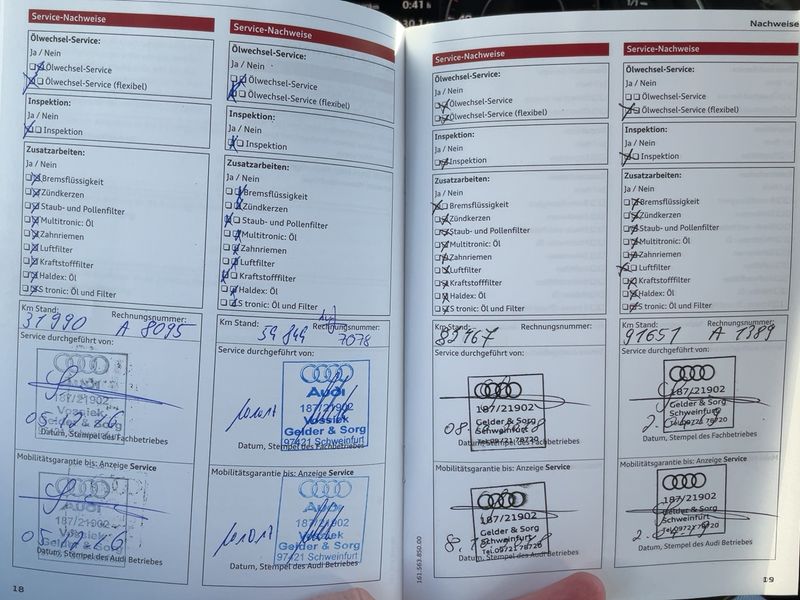 0:41
Service-Nachweise
Ölwechsel-Service:
Ja / Nein
Ölwechsel-Service
Ölwechsel-Service (flexibel)
Inspektion:
Ja / Nein
Inspektion
Zusatzarbeiten:
Ja / Nein
Bremsflüssigkeit
Zündkerzen
Staub- und Pollenfilter
Multitronic: Öl
Zahnriemen
Luftfilter
Kraftstofffilter
Haldex: Öl
S tronic: Öl und Filter
Km Stand: Rechnungsnummer:
31990 A 8095
Service durchgeführt von:
Audi
187/21902
Vossiek
Gelder & Sorg
Datum, Stempel des Fachbetriebes
Mobilitätsgarantie bis: Anzeige Service
Audi
187/21902
Vossiek
Gelder & Sorg
Datum, Stempel des Audi Betriebes
18
Service-Nachweise
Ölwechsel-Service:
Ja / Nein
Ölwechsel-Service
Ölwechsel-Service (flexibel)
Inspektion:
Ja / Nein
Inspektion
Zusatzarbeiten:
Ja / Nein
Bremsflüssigkeit
Zündkerzen
Staub- und Pollenfilter
Multitronic: Öl
Zahnriemen
Luftfilter
Kraftstofffilter
Haldex: Öl
S tronic: Öl und Filter
Km Stand: Rechnungsnummer:
54 844 7078
Service durchgeführt von:
Audi
187/21902
Vossiek
Gelder & Sorg
97421 Schweinfurt
Datum, Stempel des Fachbetriebes
Mobilitätsgarantie bis: Anzeige Service
Audi
187/21902
Vossiek
Gelder & Sorg
97421 Schweinfurt
Datum, Stempel des Audi Betriebes
Service-Nachweise
Ölwechsel-Service:
Ja / Nein
Ölwechsel-Service
Ölwechsel-Service (flexibel)
Inspektion:
Ja / Nein
Inspektion
Zusatzarbeiten:
Ja / Nein
Bremsflüssigkeit
Zündkerzen
Staub- und Pollenfilter
Multitronic: Öl
Zahnriemen
Luftfilter
Kraftstofffilter
Haldex: Öl
S tronic: Öl und Filter
Km Stand: Rechnungsnummer:
82167
Service durchgeführt von:
187/21902
Gelder & Sorg
Schweinfurt
Tel.09721/78720
Mobilitätsgarantie bis: Anzeige Service
187/21902
Gelder & Sorg
Schweinfurt
Tel.09721/78720
Datum, Stempel des Audi Betriebes
161.563.850.00
Nachweise
Service-Nachweise
Ölwechsel-Service:
Ja / Nein
Ölwechsel-Service
Ölwechsel-Service (flexibel)
Inspektion:
Ja / Nein
Inspektion
Zusatzarbeiten:
Ja / Nein
Bremsflüssigkeit
Zündkerzen
Staub- und Pollenfilter
Multitronic: Öl
Zahnriemen
Luftfilter
Kraftstofffilter
Haldex: Öl
S tronic: Öl und Filter
Km Stand: Rechnungsnummer:
91651 A 1389
Service durchgeführt von:
187/21902
Gelder & Sorg
Schweinfurt
Tel.09721/78720
Datum, Stempel des Fachbetriebes
Mobilitätsgarantie bis: Anzeige Service
187/21902
Gelder & Sorg
Schweinfurt
Tel.09721/78720
Datum, Stempel des Audi Betriebes
19